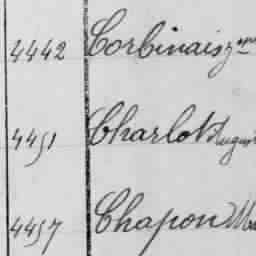 4442 Corbinais
4451 Charlot August
4457 Chapon